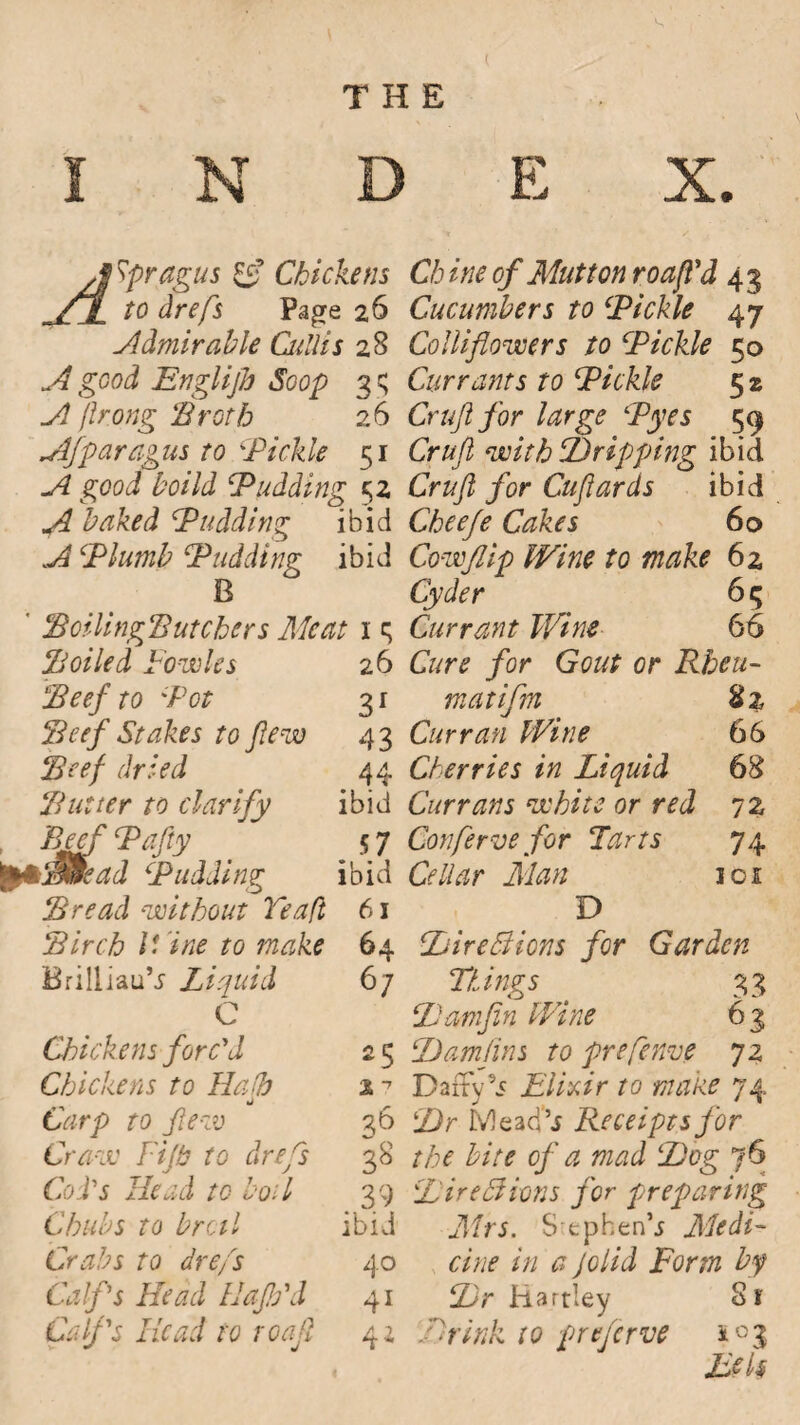 THE
INDEX.
ASpragus & Chickens
to dreſs Page 26
Admirable Cullis 28
A good Engliſh Soop 35
A ſtrong Broth 26
Aſparagus to Pickle 51
A good boild Pudding 52
A baked Pudding ibid
A Plumb Pudding ibid
B
Boiling Butchers Meat 15
Boiled Fowles 26
Beef to Pot 31
Beef Stakes to ſtew 43
Beef dried 44
Butter to clarify ibid
Beef Paſty 57
Bread Pudding ibid
Bread without Yeaſt 61
Birch Wine to make 64
Brilliau's Liquid 67
C
Chickens forc'd 25
Chickens to Haſh 27
Carp to ſtew 36
Craw Fiſh to dreſs 38
Cod's Head to boil 39
Chubs to broil ibid
Crabs to dreſs 40
Calf's Head Haſh'd 41
Calf's Head to roaſt 42
Chine of Mutton roaſt'd 43
Cucumbers to Pickle 47
Colliflowers to Pickle 50
Currants to Pickle 52
Cruſt for large Pyes 59
Cruſt with Dripping ibid
Cruſt for Cuſtards ibid
Cheeſe Cakes 60
Cowſlip Wine to make 62
Cyder 65
Currant Wine 66
Cure for Gout or Rheu-
matiſm 82
Curran Wine 66
Cherries in Liquid 68
Currans white or red 72
Conſerve for Tarts 74
Cellar Man 101
D
Directions for Garden
Things 33
Damſin Wine 63
Damſins to preſenve 72
Daffy's Elixir to make 74
Dr Mead's Receipts for
the bite of a mad Dog 76
Directions for preparing
Mrs. Stephen's Medi-
cine in a ſolid Form by
Dr Hartley 81
Drink to preſerve 103
Eels